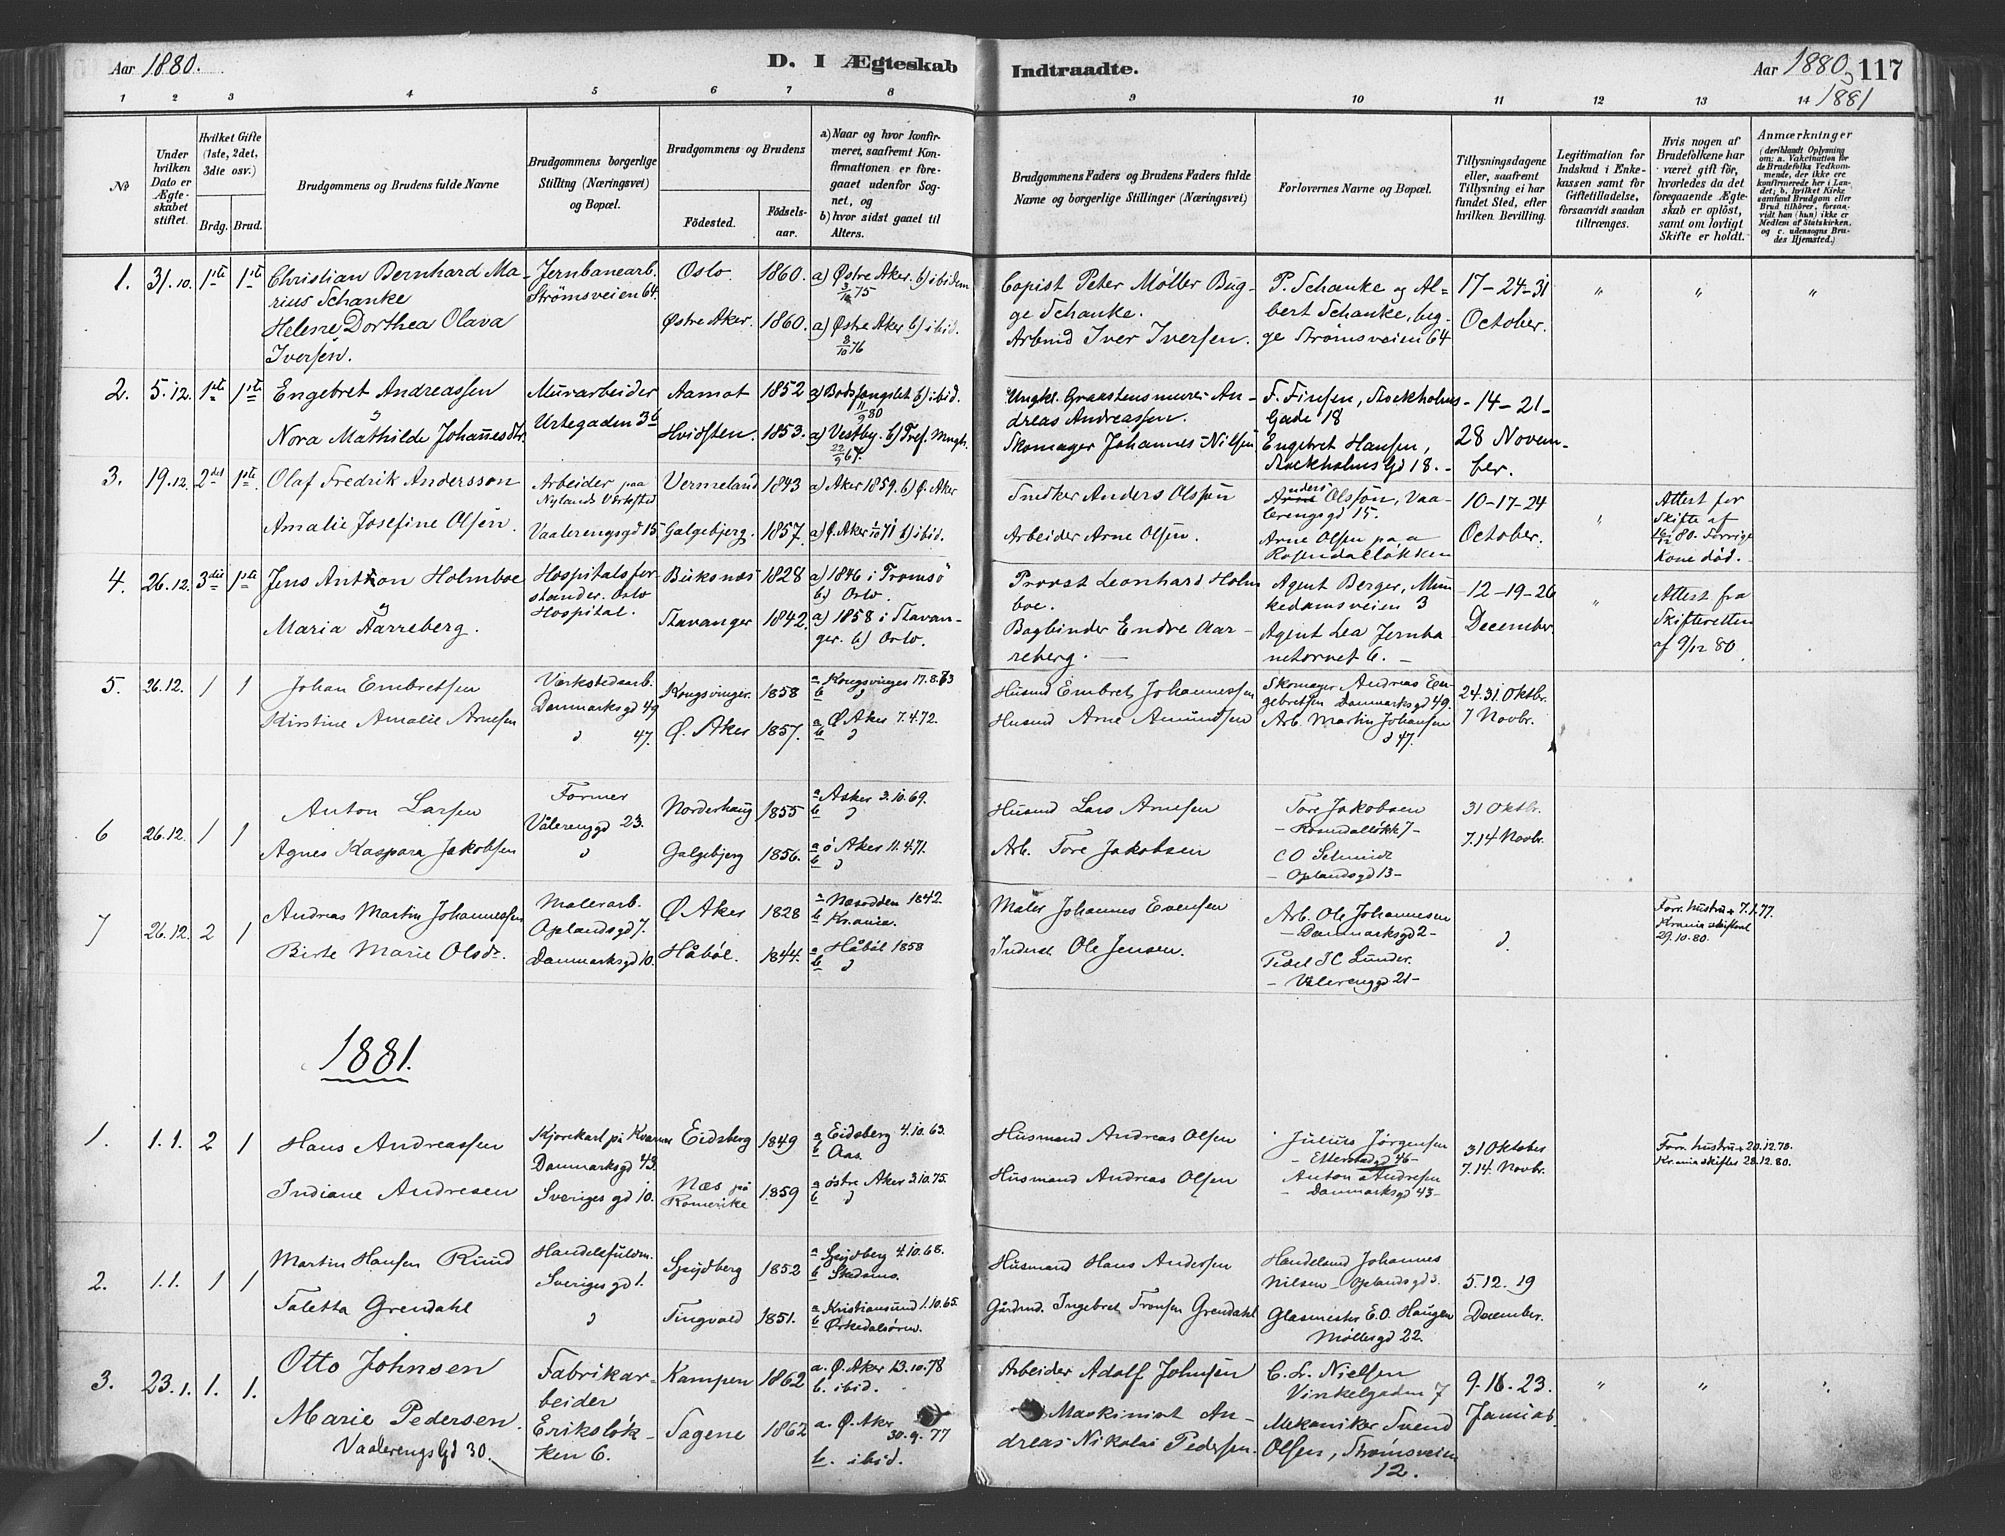 Aar 1880. D. I Ægteskab Indtraadte. Aar 1880 og 1881 117
1 2 3 4 5 6 7 8 9 10 11 12 13 14
No
Under hvilken Dato er Ægteskabet stiftet.
Hvilket Gifte (1ste, 2det, 3dte osv.)
Brdg. Brud.
Brudgommens og Brudens fulde Navne
Brudgommens borgerlige Stilling (Næringsvei) og Bopæl.
Brudgommens og Brudens
Fødested. Fødselsaar.
a) Naar og hvor konfirmeret, saafremt Konfirmationen er foregaaet udenfor Sognet, og
b) hvor sidst gaaet til Alters.
Brudgommens Faders og Brudens Faders fulde Navne og borgerlige Stillinger (Næringsvei)
Forlovernes Navne og Bopæl.
Tillysningsdagene eller, saafremt Tillysning ei har fundet Sted, efter hvilken Bevilling.
Legitimation for Indskud i Enkekassen samt for Giftetilladelse, forsaavidt saadan tiltrænges.
Hvis nogen af Brudefolkene har været gift før, hvorledes da det foregaaende Ægteskab er opløst, samt om lovligt Skifte er holdt.
Anmærkninger (deriblandt Oplysning om: a. Vakcination for de Brudefolks Vedkommende, der ikke ere konfirmerede her i Landet; b. hvilket Kirkesamfund Brudgom eller Brud tilhører, forsaavidt han (hun) ikke er Medlem af Statskirken, og c. udensogns Brudes Hjemsted.)
1. 31.10. 1ste 1ste Christian Bernhard Marius Schanke Jernbanearb. Strømsveien 64. Oslo 1860. a) Østre Aker. b) ibidem 3/10 75 Copist Peter Møller Bugge Schanke. P. Schanke og Albert Schanke, begge Strømsveien 64 17-24-31 October. " " "
Helene Dorthea Olava Iversen. Østre Aker. 1860. a) Østre Aker b) ibid. 8/10 76 Arbmd Iver Iversen.
2. 5.12. 1ste 1ste Engebret Andreassen Murarbeider Urtegaden 36 Aamot 1852 a) Bodsfængslet b) ibid. 11/9 80 Ungkl. Graastensmurer Andreas Andreassen. F. Finsen, Stockholms Gade 18 -14-21-28 November.
Nora Mathilde Johannesdtr. Hvidsten. 1853. a) Vestby. b) Tref. Mngh. 22/9 67. Skomager Johannes Nilsen Engebret Hansen, Stockholms Gd 18.
3. 19.12. 2det 1ste Olaf Fredrik Andersson Arbeider paa Nylands Værksted Vermeland 1843 a) Aker 1859. b) Ø. Aker Snedker Anders Olsson Anders Olsson, Vaalerengsgd 15. 10-17-24 October. " Attest for Skifte af 16/12 80. Forrige Kone død.
Amalie Josefine Olsen. Vaalerengsgd 15 Galgebjerg. 1857. a) Ø. Aker 1/10 71 b) ibid. Arbeider Arne Olsen. Arne Olsen paa Rosendalløkken
4. 26.12. 3die 1ste Jens Anton Holmboe Hospitalsforstander. Oslo Hospital. Buksnæs 1828 a) 1846 i Tromsö b) Oslo. Provst Leonhard Holmboe. Agent Berger, Munkedamsveien 3 -12-19-26 December. " Attest fra Skifteretten af 9/12 80.
Maria Aarreberg. Stavanger 1842. a) 1858 i Stavanger. b) Oslo. Bogbinder Endre Aarreberg. Agent Lea Jernbanetorvet 6.
5. 26.12. 1 1 Johan Embretsen Værkstedsarb. Danmarksgd 49 Kongsvinger. 1858 a Kongsvinger 17.8.73 b " Husmd Embret Johannessen Skomager Andreas Engebretsen Danmarksgd 49. 24.31. Oktbr. 7 Novbr.
Kirstine Amalie Arnesen " 47. Ø. Aker 1857. a Ø Aker 7.4.72. b " Husmd Arne Amundsen Arb. Martin Johansen " 47.
6 26.12. 1 1 Anton Larsen Former Vålerenggd 23. Norderhaug 1855 a Asker 3.10.69. b " Husmd Lars Arnesen Tore Jakobsen - Rosendalløkk 7 - 31 Oktbr. 7.14 Novbr.
Agnes Kaspara Jakobsen " Galgebjerg 1856. a ø Aker 11.4.71. b " Arb. Tore Jakobsen C O Schmidt - Oplandsgd 13 -
7 26.12. 2 1 Andreas Martin Johannessen Malerarb. Oplandsgd 7. Ø Aker 1828 a Næsodden 1842. b Kr.ania. Maler Johannes Evensen Arb. Ole Johannesen - Danmarksgd 2 - " Forr. hustru + 7.1.77. Kr.ania skifteret 29.10.80.
Birte Marie Olsdr. Danmarksgd 10. Håböl. 1844. a Håböl 1858 b " Inderst Ole Jensen. Pedel I C Lunder. - Vålerenggd 21 -
1881.
1. 1.1. 2 1 Hans Andreassen Kjørekarl på Danmarksgd 43. Eidsberg 1849 a Eidsberg 4.10.63. b Aas. Husmand Andreas Olsen Julius Jørgensen - Etterstadgd 46 - 31 Oktober 7.14 Novbr. Forr. hustru + 20.12.78. Kr.ania skifter. 28.12.80.
Indiane Andresen Sveriges gd 10. Næs på Romerike 1859 a østre Aker 3.10.75. b " Husmand Andreas Olsen Anton Andresen - Danmarksgd 43 -
2. 1.1. 1 1 Martin Hansen Ruud Handelsfuldm. Sveriges gd 1. Spydberg 1852 a Spydberg 4.10.68. b Skedsmo. Husmand Hans Andersen Handelsmd Johannes Nilsen - Oplandsgd 3. 5.12.19 December.
Taletta Grendahl " Tingvold 1851. a Kristiansund 1.10.65. b Ørkedalsören. Gårdmd. Ingebret Tronsen Grendahl Glasmester E.O. Haugen Møllergd 22.
3. 23.1. 1. 1. Otto Johnsen Fabrikarbeider Erikslökken 6. Kampen 1862 a. Ø. Aker 13.10.78 b. ibid. Arbeider Adolf Johnsen C. L. Nielsen Vinkelgaden 7 9.16.23. Januar. " " "
Marie Pedersen. Vaalerengs Gd 30. Sagene 1862 a. Ø. Aker 30.9.77 b. ibid. Maskinist Andreas Nikolai Pedersen. Mekaniker Svend Olsen, Strømsveien 12.